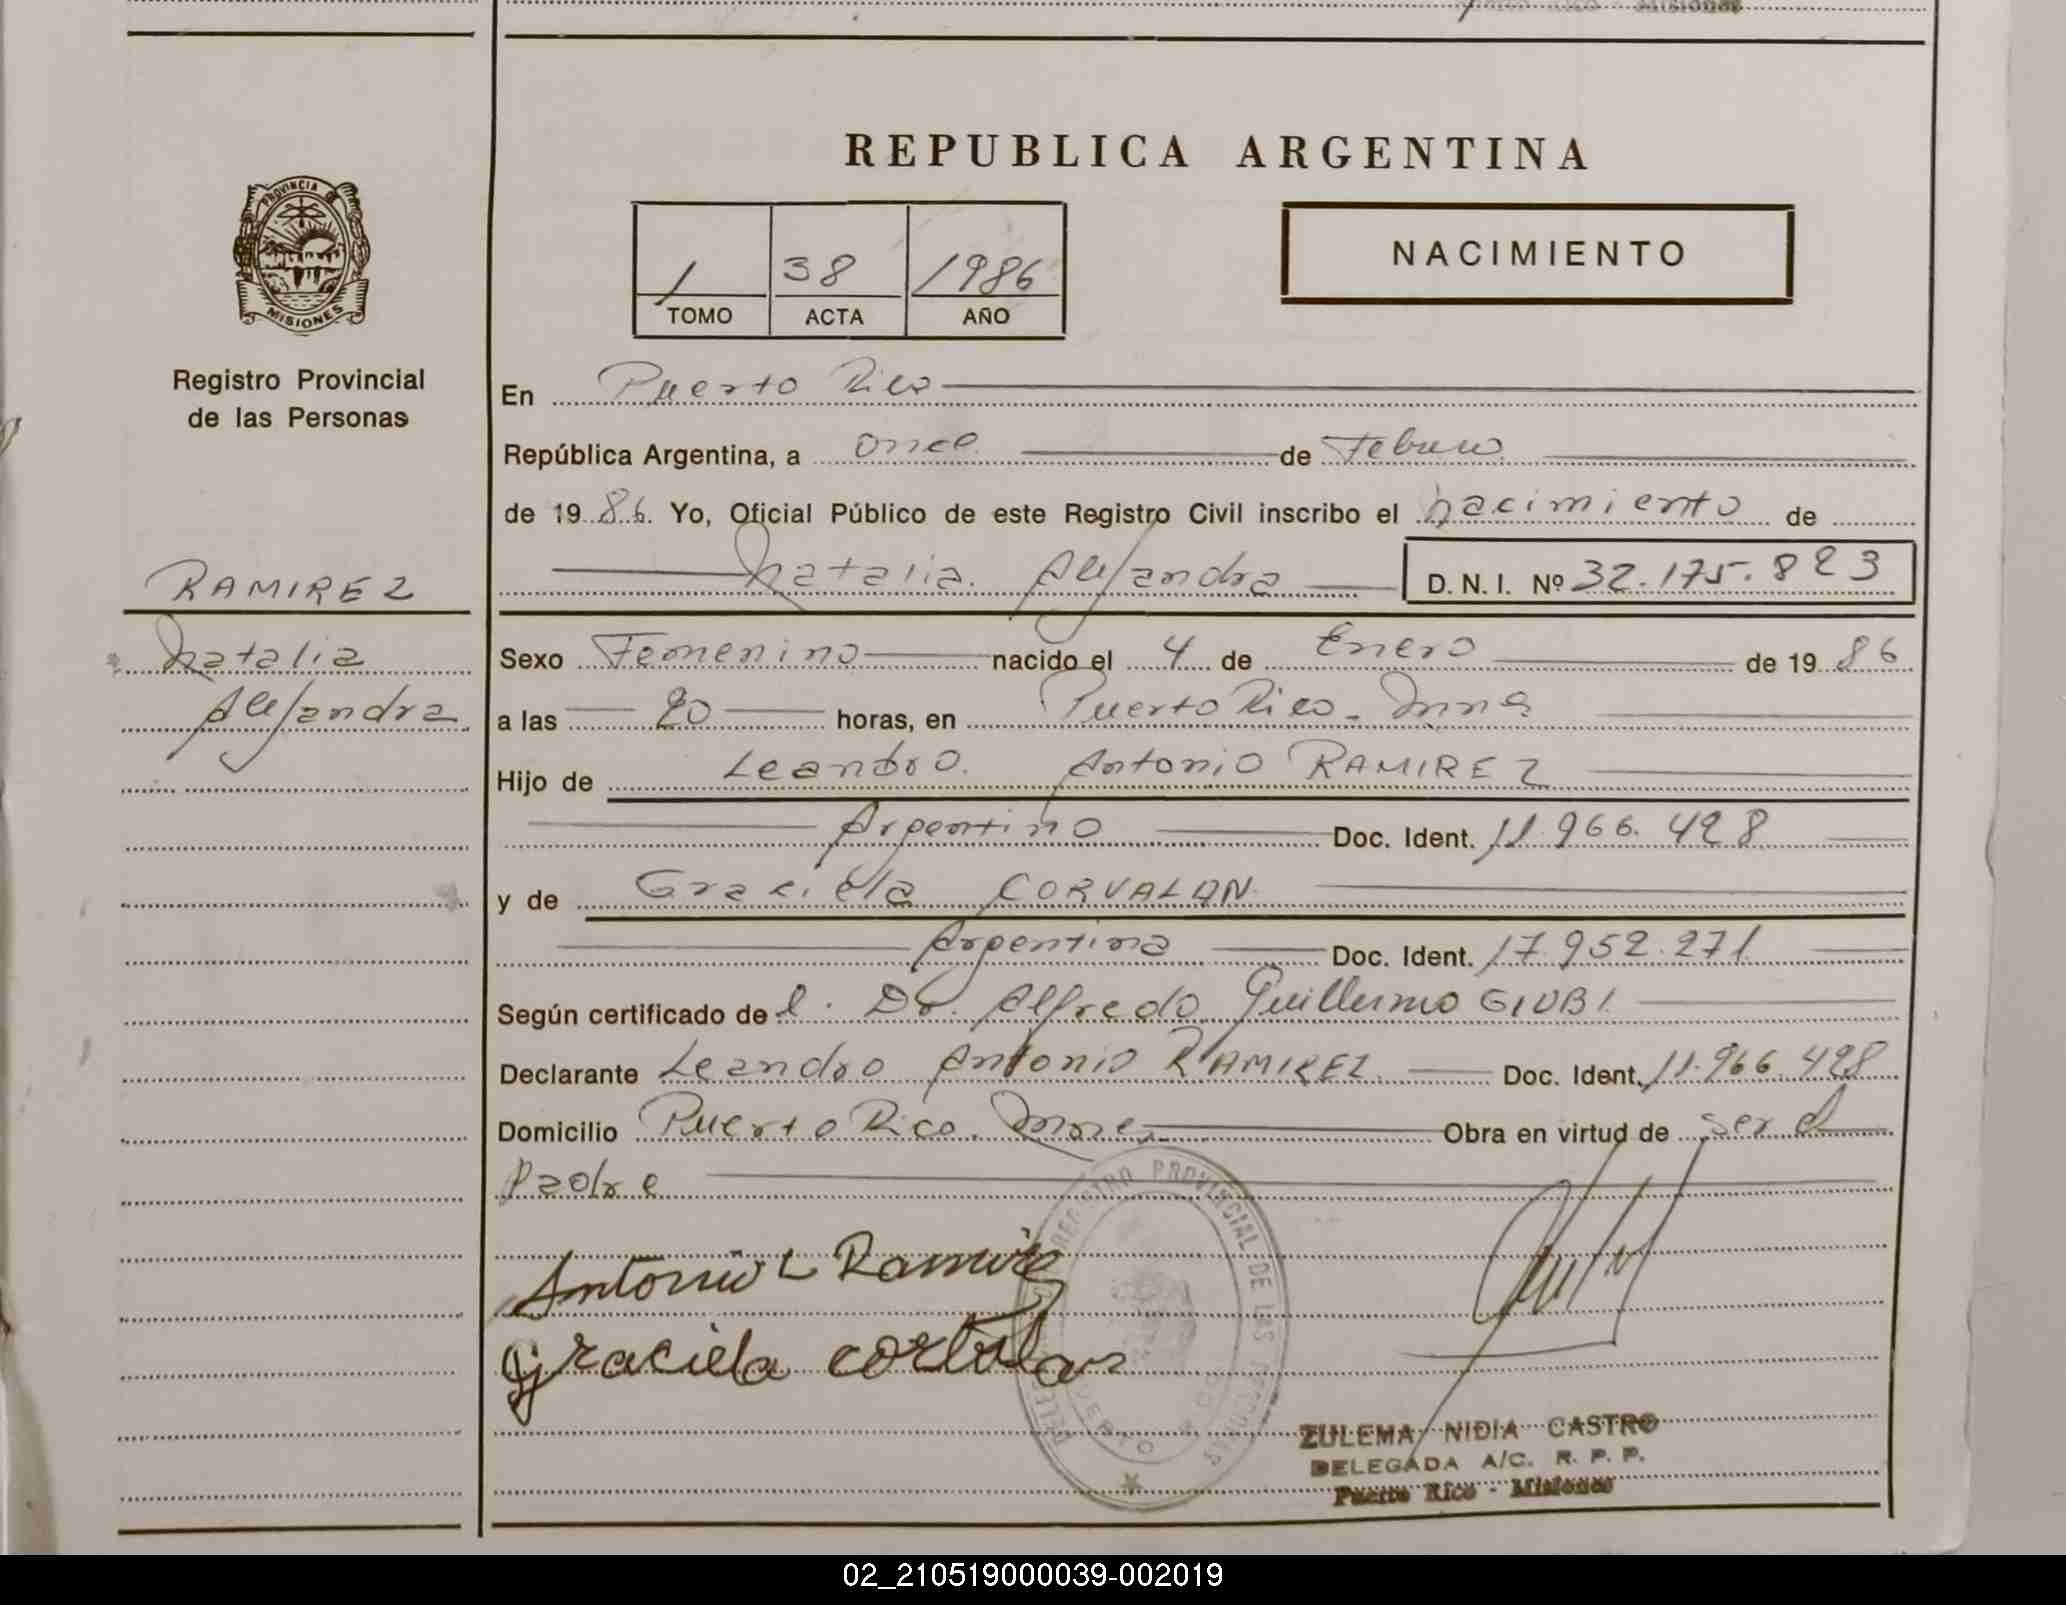 Misiones
REPUBLICA ARGENTINA
PROVINCIA DE
MISIONES
1 38 1986
TOMO ACTA AÑO
NACIMIENTO
Registro Provincial
de las Personas
RAMIREZ
Natalia
Alejandra
En Puerto Rico
República Argentina, a once de Febrero
de 1986. Yo, Oficial Público de este Registro Civil inscribo el nacimiento de
Natalia Alejandra D. N. I. Nº 32.175.823
Sexo Femenino nacido el 4 de Enero de 1986
a las 20 horas, en Puerto Rico - Mnes
Hijo de Leandro Antonio RAMIREZ
Argentino Doc. Ident. 11.966.428
y de Graciela CORVALAN
Argentina Doc. Ident. 17.952.271
Según certificado del Dr. Alfredo Guillermo GIUBI
Declarante Leandro Antonio RAMIREZ Doc. Ident. 11.966.428
Domicilio Puerto Rico, Mnes Obra en virtud de ser el
Padre
Antonio L Ramirez
Graciela corbalan
REGISTRO PROVINCIAL DE LAS PERSONAS
PUERTO RICO
ZULEMA NIDIA CASTRO
DELEGADA A/C. R. P. P.
Puerto Rico - Misiones
02_210519000039-002019